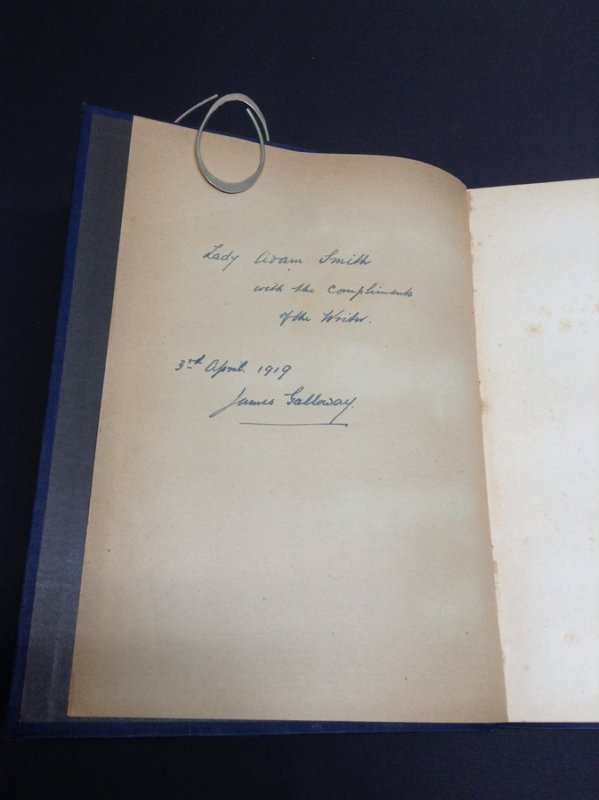 Lady Adam Smith
with the compliments
of the Writer.
3rd April. 1919
James Galloway.